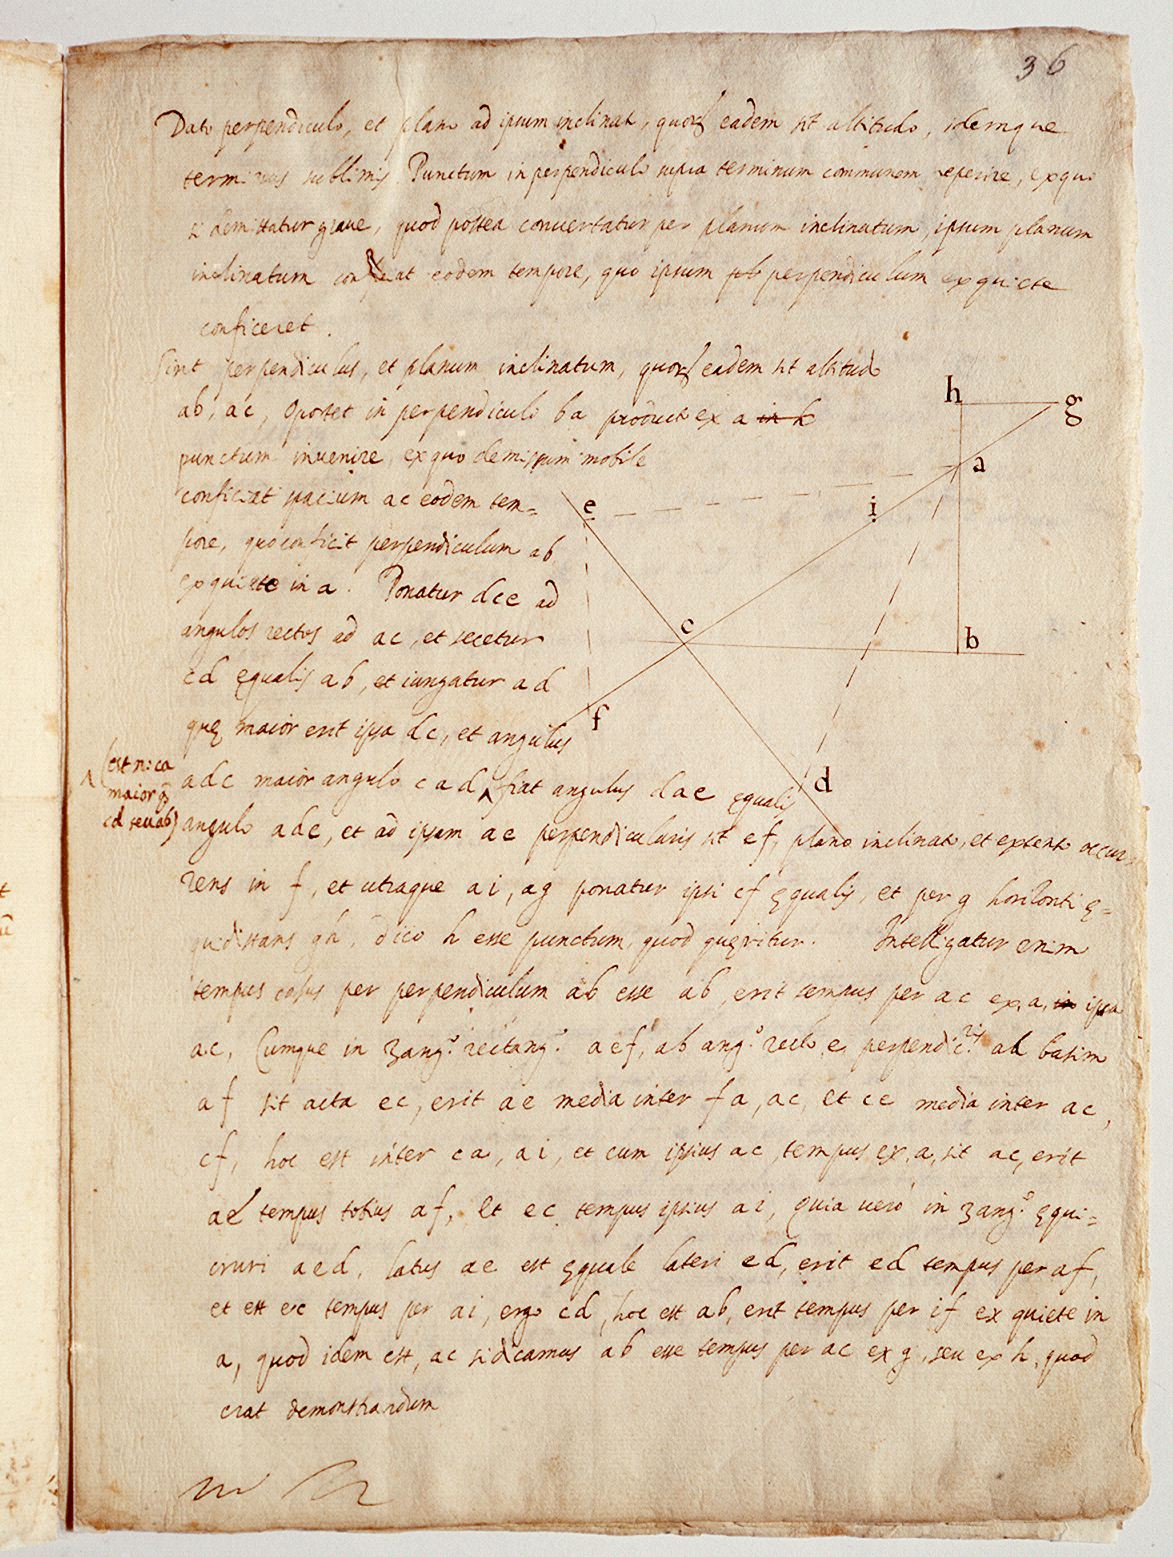 36
Dato perpendiculo, et plano ad ipsum inclinato, quorum eadem sit altitudo, idemque
terminus sublimis. Punctum in perpendiculo supra terminum communem reperire, ex quo
si demittatur graue, quod postea conuertatur per planum inclinatum, ipsum planum
inclinatum conficiat eodem tempore, quo ipsum perpendiculum ex quiete
conficeret.
Sint perpendiculus, et planum inclinatum, quorum eadem sit altitudo
ab, ac, oportet in perpendiculo ba producto ex a
punctum inuenire, ex quo demissum mobile
conficiat spacium ac eodem tem=
pore, quo conficit perpendiculum ab
ex quiete in a. Ponatur dce ad
angulos rectos ad ac, et secetur
cd ęqualis ab, et iungatur ad
quę maior erit ipsa dc, et angulus
adc maior angulo cad ^ fiat angulus dae ęqualis
(est n: ca
maior q̃
cd seu ab)
angulo ade, et ad ipsam ae perpendicularis sit ef, plano inclinato, et extento occur
rens in f, et utraque ai, ag ponatur ipsi cf ęqualis, et per g horizonti ę=
quidistans gh, dico h esse punctum, quod quęritur. Intelligatur enim
tempus casus per perpendiculum ab esse ab, erit tempus per ac ex a, ipsa
ac, Cumque in 3ang.º rectang.º aef, ab ang.º recto e perpendic.ris ad basim
af sit acta ec, erit ae media inter fa, ac, et ce media inter ac,
cf, hoc est inter ca, ai, et cum ipsius ac, tempus ex, a, sit ac, erit
ae tempus totius af, et ec tempus ipsius ai, Quia uero in 3ang.º ęqui=
cruri aed, latus ae est ęquale lateri ed, erit ed tempus per af,
et est ec tempus per ai, ergo cd, hoc est ab, erit tempus per if ex quiete in
a, quod idem est, ac si dicamus ab esse tempus per ac ex g, seu ex h, quod
erat demonstrandum
h g
a
e i
c b
f
d